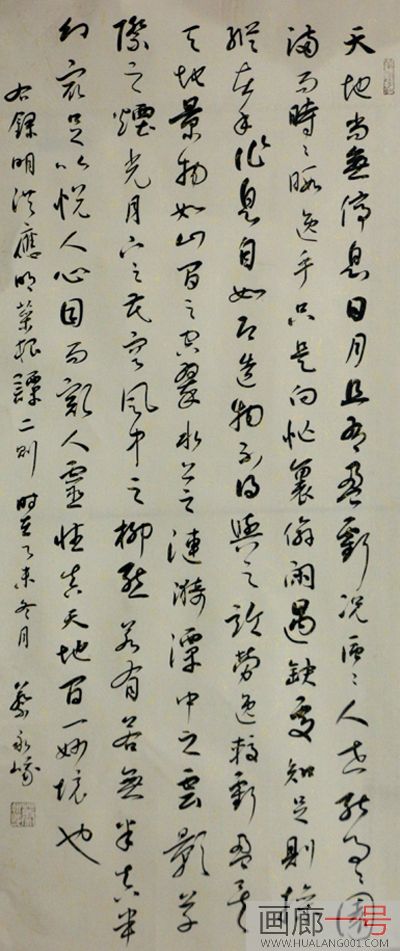 天地尚無停息日月且有盈虧況區々人世能事々圓
滿而時々暇逸乎只是向忙裏偷閑遇缺處知足則操
縱在手作息自如即造物不得與之論勞逸較虧盈矣
天地景物如山間之空翠水上之漣漪潭中之雲影草
際之煙光月下之花容風中之柳態若有若無半真半
幻最足以悅人心目而豁人靈性真天地間一妙境也
右錄明洪應明菜根譚二則 時在乙未冬月 蔡永
画廊一号
WWW.HUALANG001.COM